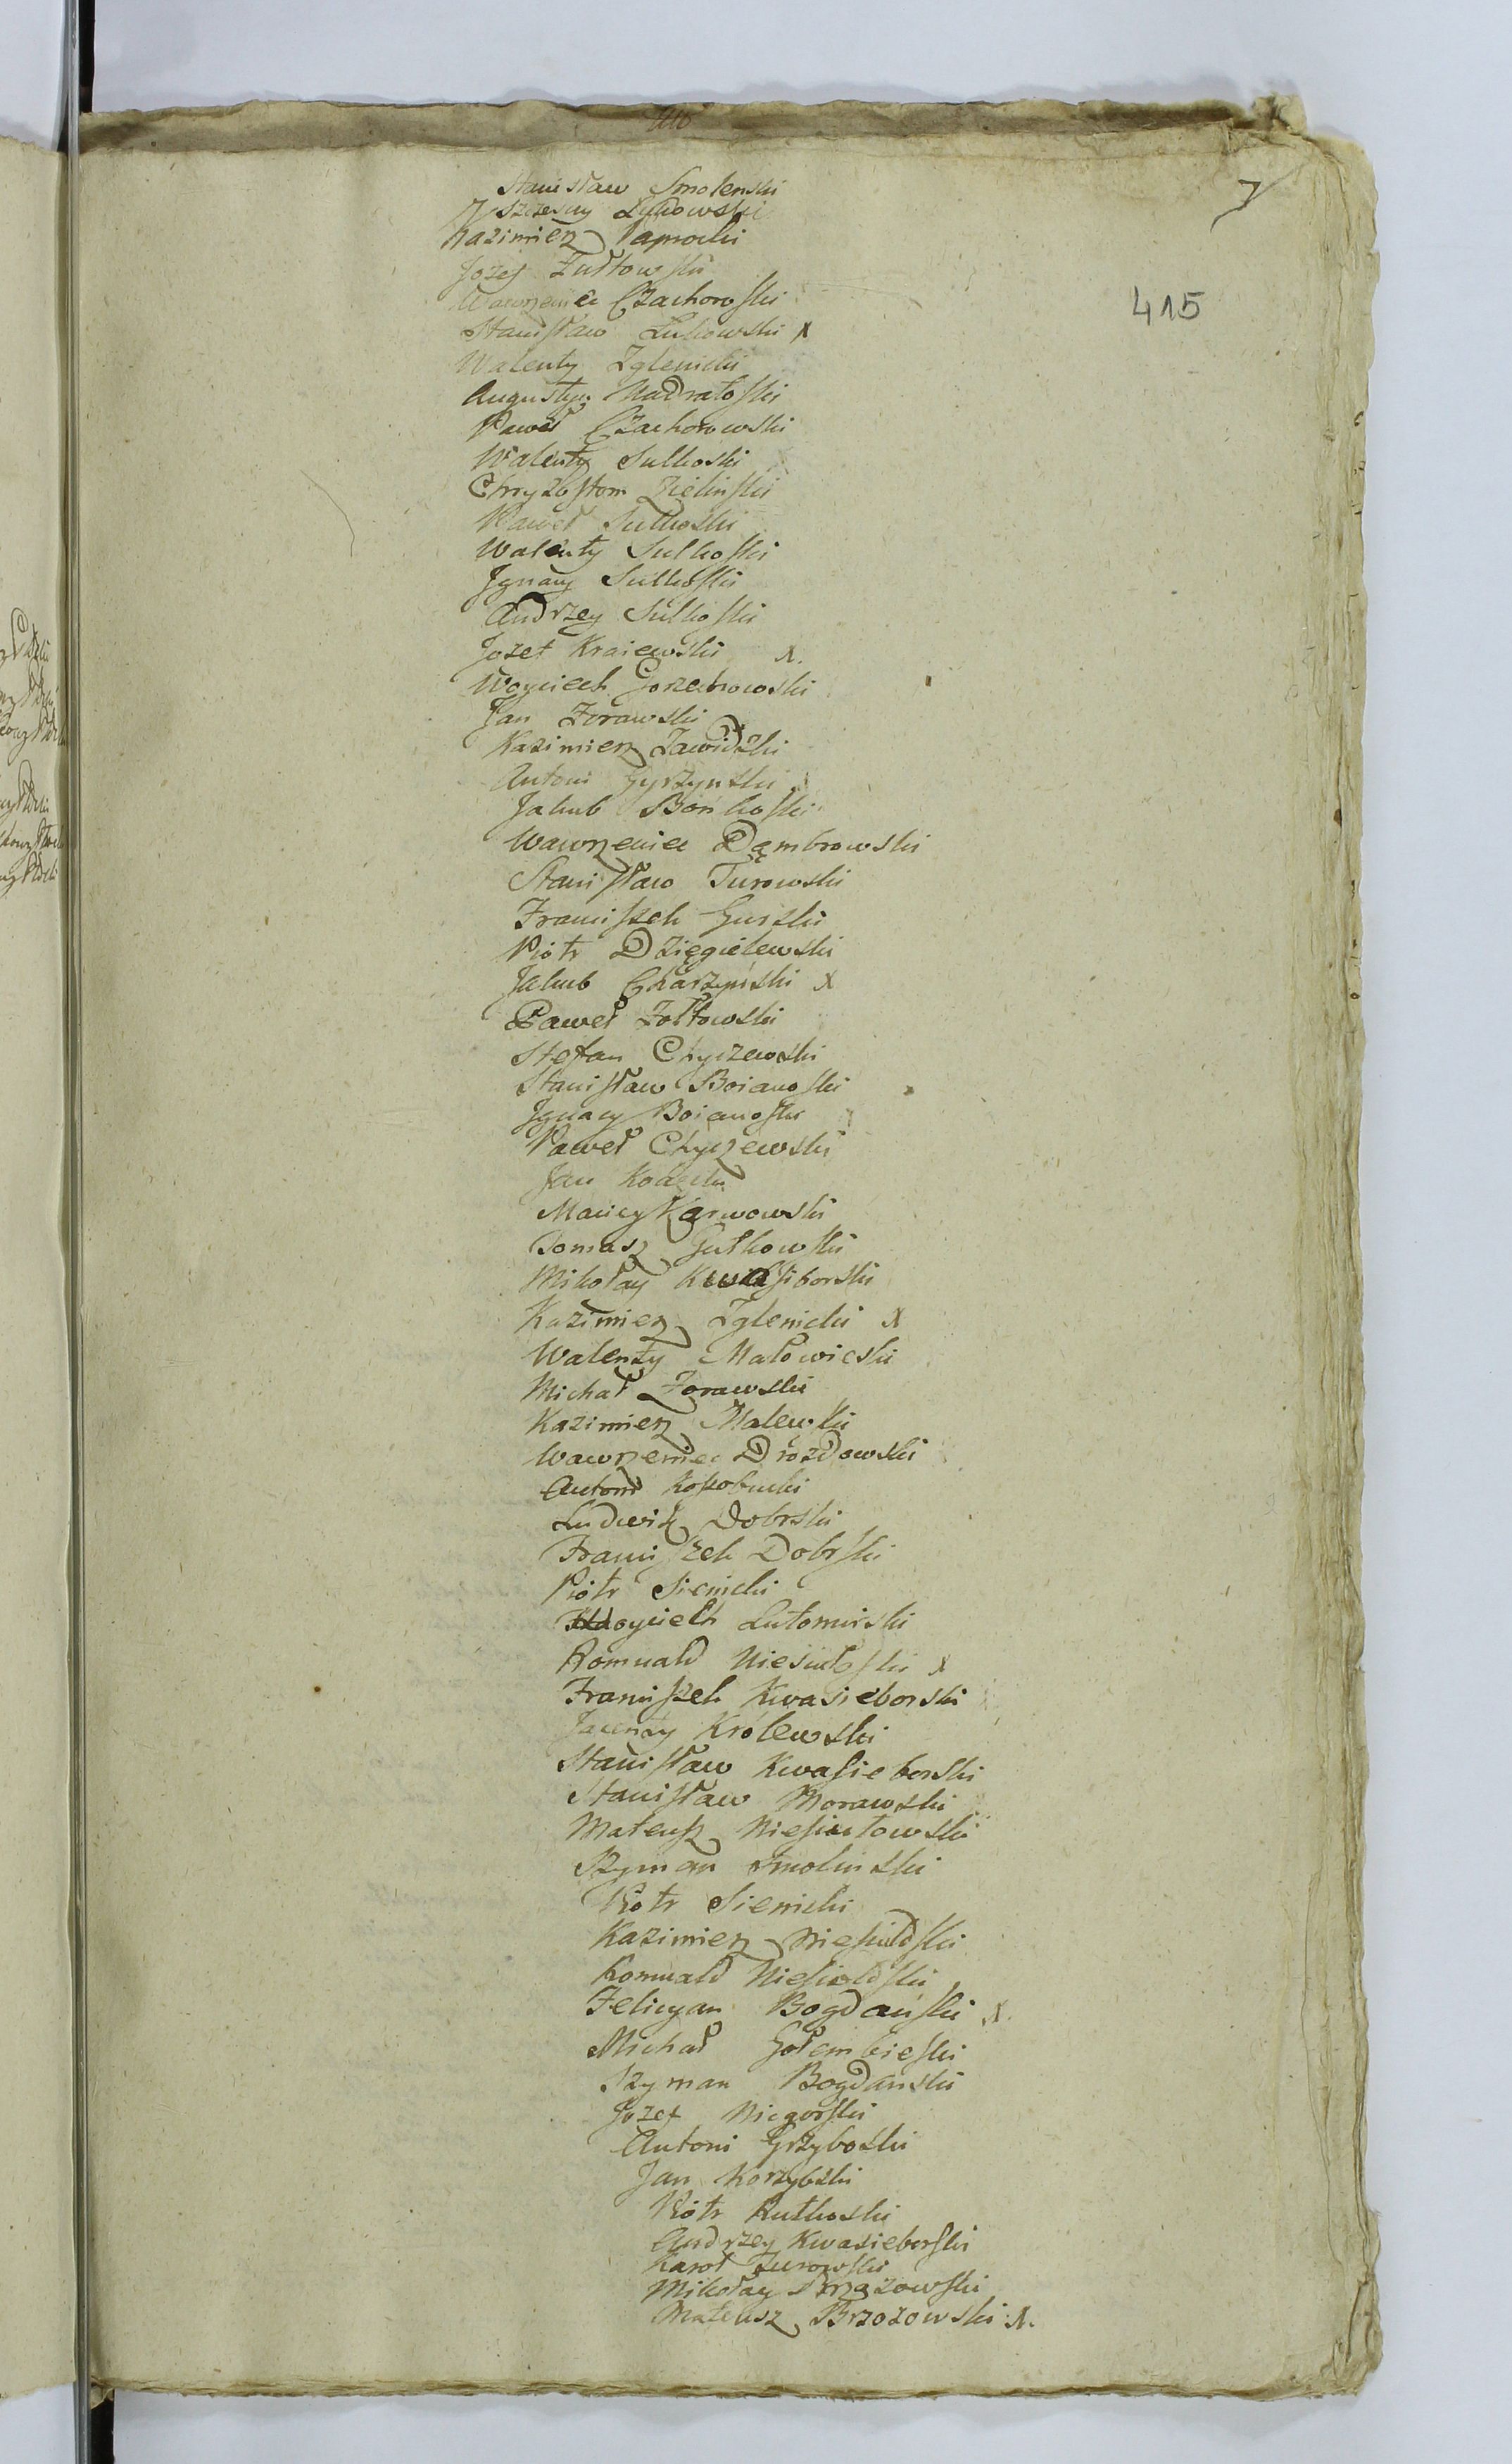 7
415
Stanisław Smolenski
Szczesny Lykowski
Kazimierz Paprocki
Jozef Zułtowski
Wawrzeniec Czachoroski
Stanisław Lukowski X
Walenty Zglenicki
Augustyn Madratoski
Paweł Czachorowski
Walenty Sulkoski
Chryzostom Zielinski
Paweł Sulkoski
Walenty Sulkoski
Jgnacy Sulkoski
Andrzey Sulkoski
Jozef Kraiewski X.
Woyciech Gorzechowski
Jan Zorawski
Kazimierz Zawidzki
Antoni Gyrzynski
Jakub Bońkoski
Wawrzeniec Dąmbrowski
Stanisław Turowski
Franciszek Gurski
Piotr Dzięgielewski
Jakub Charzyński X
Paweł Zołtowski
Stefan Chyczewski
Stanisław Boianoski
Jgnacy Boianoski
Paweł Chyczewski
Jan
Maciey Karwowski
Tomasz Gutkowski
Mikołay Kwasiborski
Kazimierz Zglenicki X
Walenty Małowieski
Michał Zorawski
Kazimierz Malewski
Wawrzeniec Drozdowski
Antoni Kosobucki
Ludwik Dobrski
Franciszek Dobrski
Piotr Sienicki
Woyciech Lutomirski
Romuald Niesiułoski X
Franciszek Kwasieborski
Jacenty Królewski
Stanisław Kwasieborski
Stanisław Morawski
Mateusz Niesiułowski
Szyman Smolinski
Piotr Sienicki
Kazimierz Niesiułdski
Romuald Niesiołdski
Felicyan Bogdański X.
Michał Gołembieski
Szyman Bogdański
Jozef Niegorski
Antoni Grzyboski
Jan Korzybski
Piotr Rutkoski
Andrzey Kwasieborski
Karol Zurowski
Mikołay Brzozowski
Mateusz Brzozowski X.